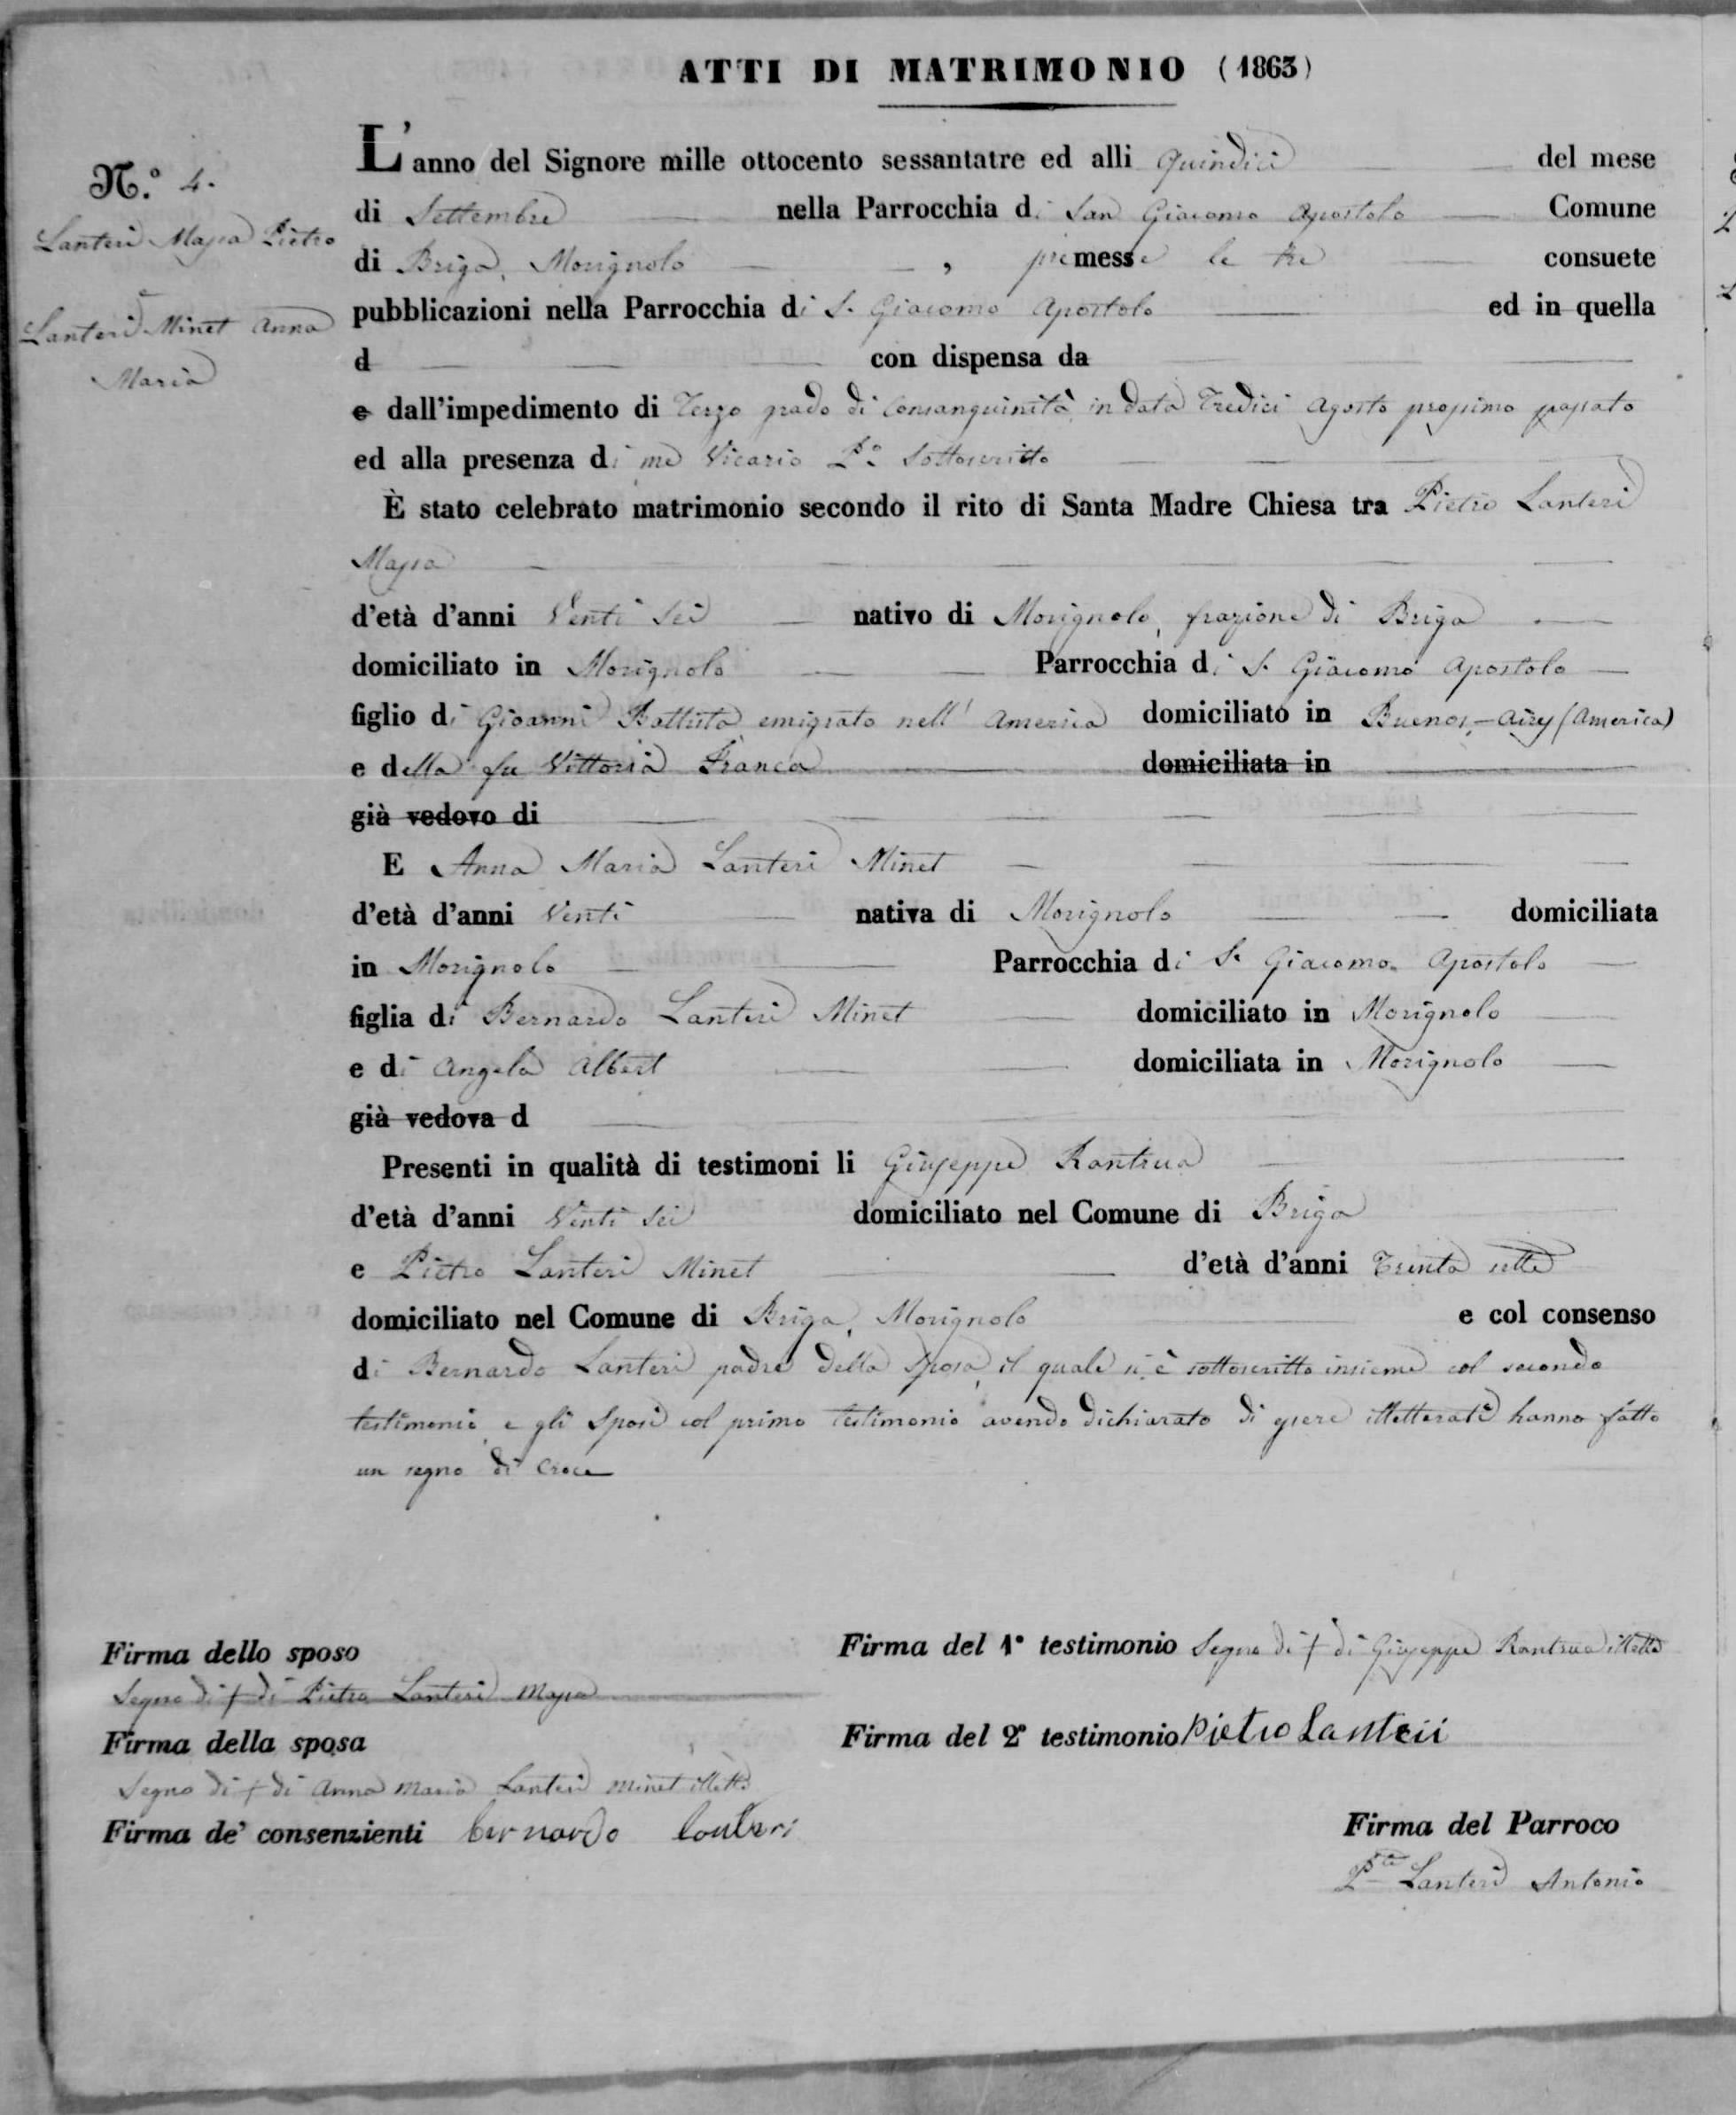 ATTI DI MATRIMONIO (1863)
N.º 4.
Lanteri Massa Pietro
e
Lanteri Minet Anna
Maria
L'anno del Signore mille ottocento sessantatre ed alli Quindici del mese
di Settembre nella Parrocchia di San Giacomo Apostolo Comune
di Briga, Morignolo, premesse le tre consuete
pubblicazioni nella Parrocchia di S. Giacomo Apostolo ed in quella
d con dispensa da
e dall'impedimento di Terzo grado di Consanguinità in data Tredici Agosto prossimo passato
ed alla presenza di me Vicario P.º Sottoscritto
È stato celebrato matrimonio secondo il rito di Santa Madre Chiesa tra Pietro Lanteri
Massa
d'età d'anni Venti Sei nativo di Morignolo, frazione di Briga
domiciliato in Morignolo Parrocchia di S. Giacomo Apostolo
figlio di Gioanni Battista emigrato nell' America domiciliato in Buenos-Aires (America)
e della fu Vittoria Franca domiciliata in
già vedovo di
E Anna Maria Lanteri Minet
d'età d'anni Venti nativa di Morignolo domiciliata
in Morignolo Parrocchia di S. Giacomo Apostolo
figlia di Bernardo Lanteri Minet domiciliato in Morignolo
e di Angela Albert domiciliata in Morignolo
già vedova d
Presenti in qualità di testimoni li Giuseppe Rantrua
d'età d'anni Venti Sei domiciliato nel Comune di Briga
e Pietro Lanteri Minet d'età d'anni Trenta sette
domiciliato nel Comune di Briga, Morignolo e col consenso
di Bernardo Lanteri padre della Sposa, il quale si è sottoscritto insieme col secondo
testimonio, e gli Sposi col primo testimonio avendo dichiarato di essere illetterati hanno fatto
un segno di Croce
Firma dello sposo
Segno di + di Pietro Lanteri Massa
Firma della sposa
Segno di + di Anna Maria Lanteri Minet illettª
Firma de' consenzienti bernardo lanteri
Firma del 1º testimonio Segno di + di Giuseppe Rantrua illettº
Firma del 2º testimonio Pietro Lanteri
Firma del Parroco
P.te Lanteri Antonio